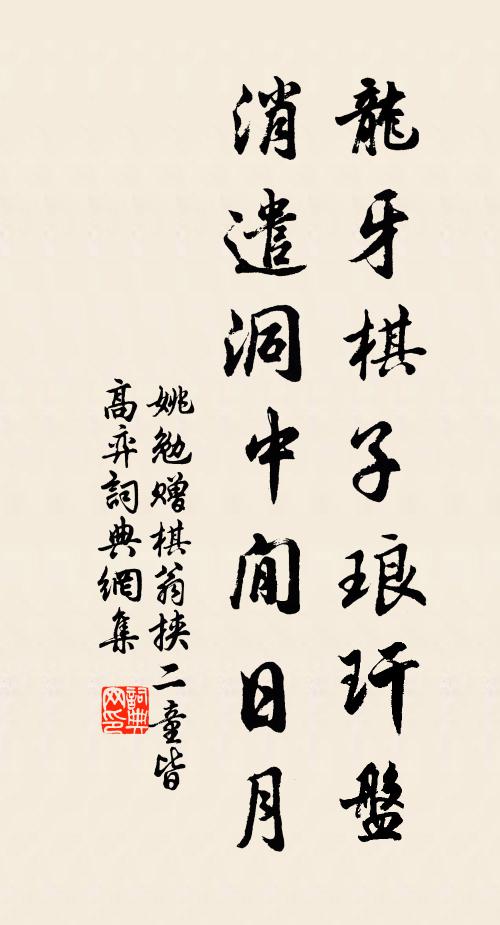 龍牙棋子琅玕盤
消遣洞中閒日月
姚勉贈棋翁挾二童皆
高弈詞典網集
詞典網印